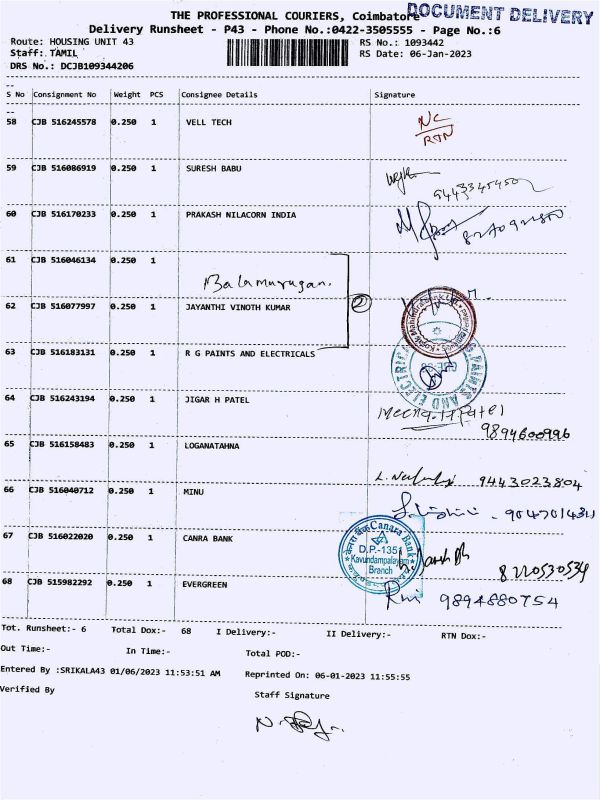 DOCUMENT DELIVERY
THE PROFESSIONAL COURIERS, Coimbatore
Delivery Runsheet - P43 - Phone No.:0422-3505555 - Page No.:6
Route: HOUSING UNIT 43 RS No.: 1093442
Staff: TAMIL RS Date: 06-Jan-2023
DRS No.: DCJB109344206
S No Consignment No Weight PCS Consignee Details Signature
58 CJB 516245578 0.250 1 VELL TECH NC
RTN
59 CJB 516086919 0.250 1 SURESH BABU
9443345450
60 CJB 516170233 0.250 1 PRAKASH NILACORN INDIA
61 CJB 516046134 0.250 1
Balamurugan.
62 CJB 516077997 0.250 1 JAYANTHI VINOTH KUMAR 2
63 CJB 516183131 0.250 1 R G PAINTS AND ELECTRICALS
PAINTS AND ELECTRIC
64 CJB 516243194 0.250 1 JIGAR H PATEL
Meena.H.Patel
9894600996
65 CJB 516158483 0.250 1 LOGANATAHNA
9443023804
66 CJB 516040712 0.250 1 MINU
67 CJB 516022020 0.250 1 CANRA BANK
Canara Bank
D.P.-1351
Kavundampalayam
Branch
8220530534
68 CJB 515982292 0.250 1 EVERGREEN
9894880754
Tot. Runsheet:- 6 Total Dox:- 68 I Delivery:- II Delivery:- RTN Dox:-
Out Time:- In Time:- Total POD:-
Entered By :SRIKALA43 01/06/2023 11:53:51 AM Reprinted On: 06-01-2023 11:55:55
Verified By Staff Signature